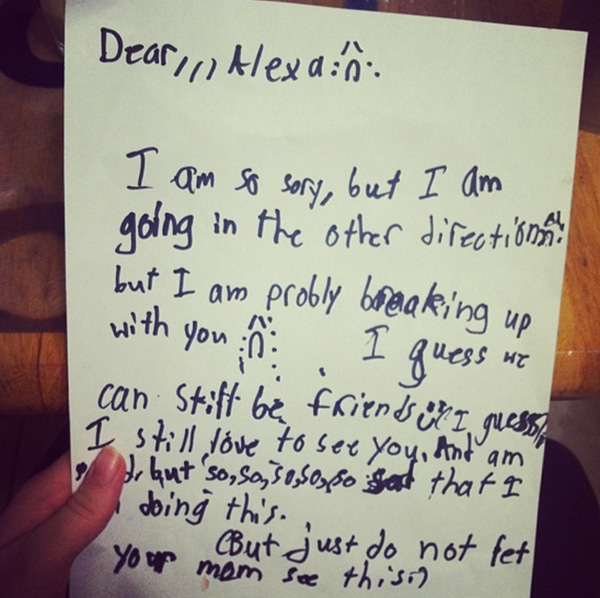 Dear,,,Alexa
I am so sory, but I am
going in the other direction
but I am probly breaking up
with you I guess we
can still be friends I guess
I still love to see you. And am
but so, so, so, so, so sad that I
doing this.
(But just do not let
your mom see this:)